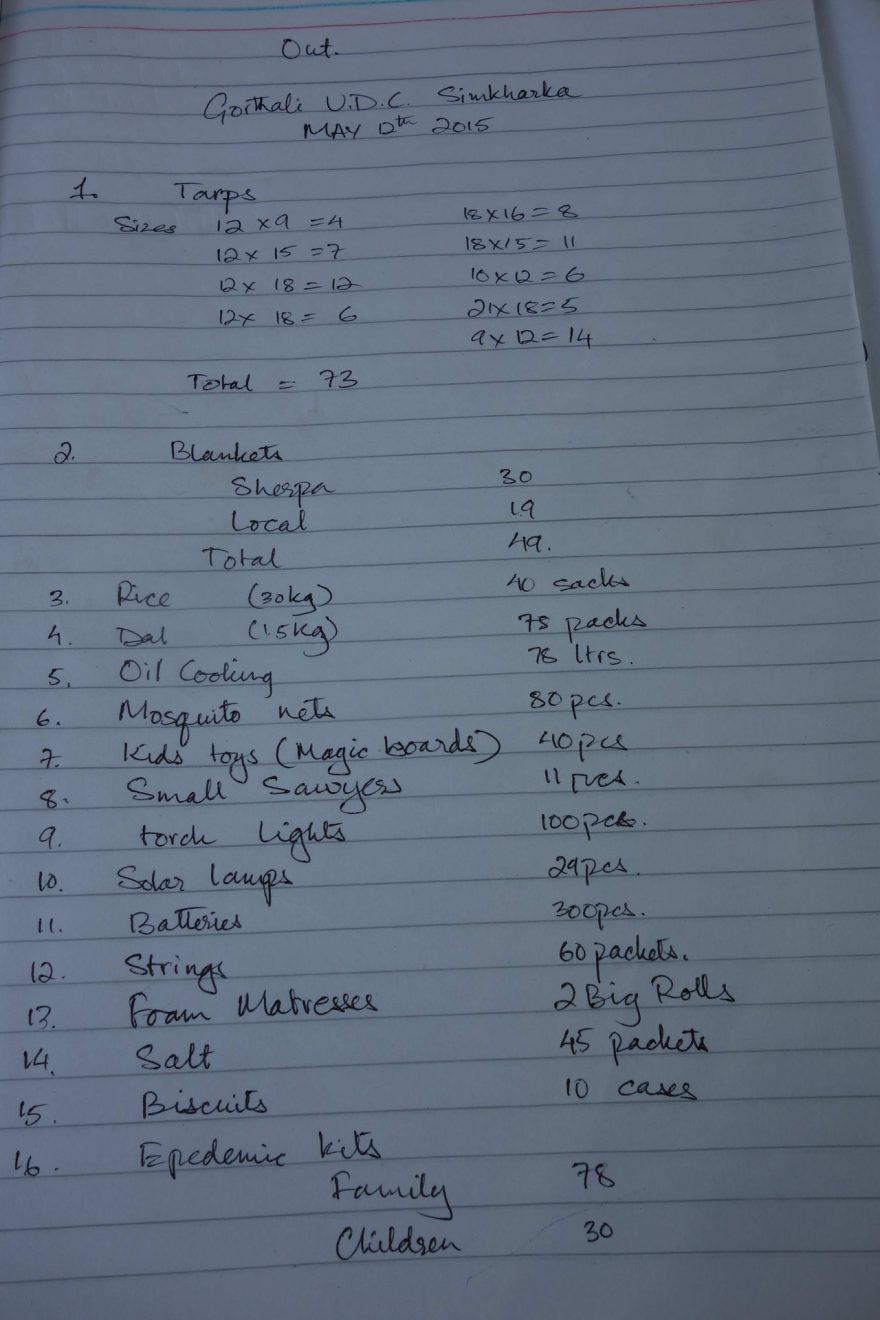 Out.
Gorthali V.D.C. Simkharka
MAY 12th 2015
1. Tarps
Sizes 12 x 9 = 4 18 x 16 = 8
12 x 15 = 7 18 x 15 = 11
12 x 18 = 12 10 x 12 = 6
12 x 18 = 6 21 x 18 = 5
9 x 12 = 14
Total = 73
2. Blankets
Sherpa 30
Local 19
Total 49.
3. Rice (30kg) 40 sacks
4. Dal (1.5kg) 78 packs
5. Oil Cooling 78 ltrs.
6. Mosquito nets 80 pcs.
7. Kids toys (Magic boards) 40 pcs
8. Small Sawyers 11 pcs.
9. torch lights 100 pcs.
10. Solar lamps 29 pcs.
11. Batteries 300 pcs.
12. Strings 60 packets.
13. Foam Matresses 2 Big Rolls
14. Salt 45 packets
15. Biscuits 10 cases
16. Epedemic kits
Family 78
Children 30